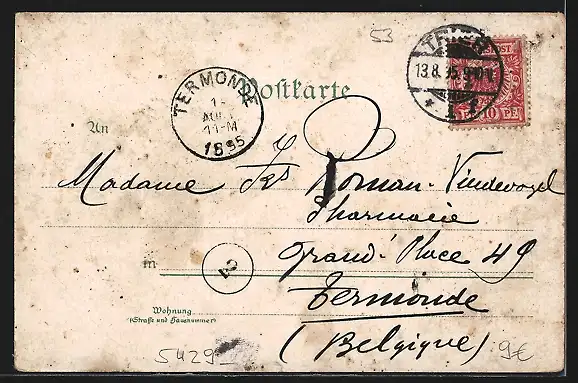 53
TRIER
13.8.95
* 1 *
REICHSPOST
10 PF
Postkarte
TERMONDE
AOUT
11-M
1895
An
Madame Roman-Vindevogel
Pharmacie
Grand'Place 49
in
2
Termonde
Wohnung
(Straße und Hausnummer)
(Belgique)
5429
9€